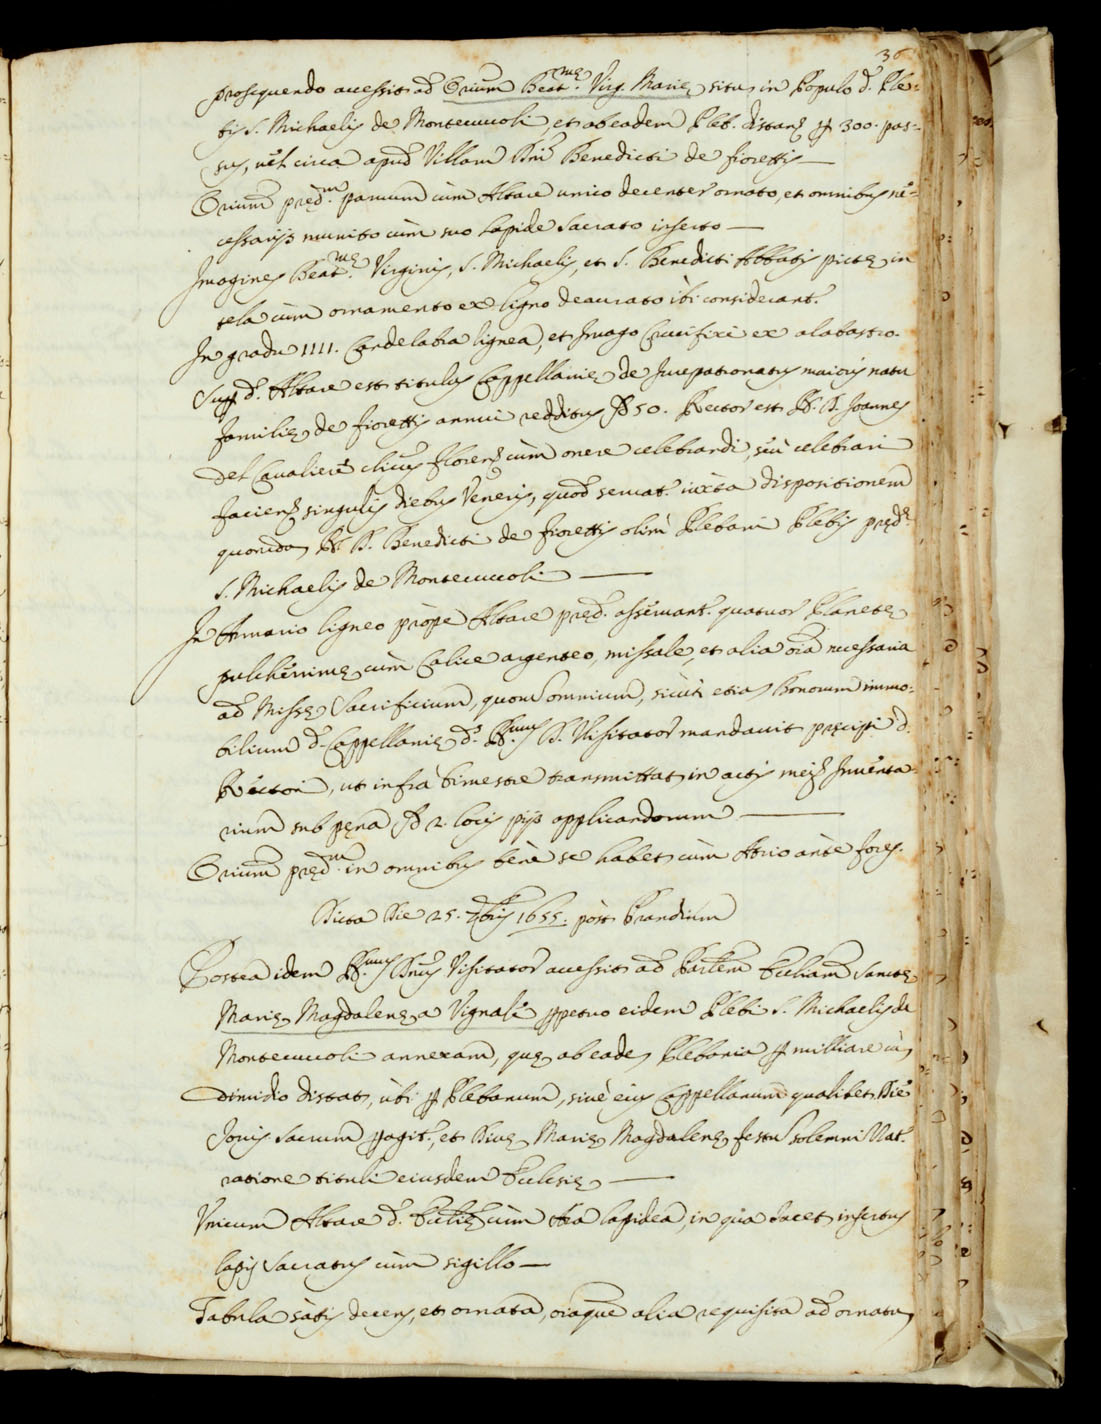 36
prosequendo accessit ad Orium Beat.mę Virg. Marię situ in Populo d. Ple:
bis S. Michaelis de Montecuccoli, et ab eadem Pleb. distans p 300. pas:
sus, vel circa apud Villam Dni Benedicti de fiorettis
Orium pręd.m paruum cùm Altare unico decenter ornato, et omnibus ne:
cessarijs munito cùm suo lapide sacrato inserto
Imagines Beat.mę Virginis, S. Michaelis, et S. Benedicti Abbatis pictę in
tela cùm ornamento ex ligno deaurato ibi considerant.
In gradu 1111. Candelabra lignea, et Imago Crucifixi ex alabastro.
Sup d. Altare est titulus Cappellanię de Iurepatronatus maioris natu
familię de fiorettis annui redditus 50. Rector est R. D. Joannes
del Caualiere clicus floren. cùm onere celebrandi, seù celebrari
faciend singulis diebus Veneris, quod seruat. iuxta dispositionem
quondam R. D. Benedicti de fiorettis olim Plebani Plebis pręd.ę
S. Michaelis de Montecuccoli
In Armario ligneo propè Altare pręd. asseruant. quatuor Planetę
pulcherrimę cùm Calice argenteo, missale, et alia oia necessaria
ad Missę Sacrificium, quorum omnium, sicùti etiam bonorum immo:
bilium d. Cappellanię d. R.mus D. Visitator mandauit pręcipi d.
Rectori, ut infrà bimestre transmittat in actis meis Inuenta:
rium sub pęna 2. locis pijs applicandorum
Orium pręd.m in omnibus benè se habet cùm Atrio ànte fores.
Dicta Die 25. 7bris 1655. pòst Prandium
Postea idem R.mus Dnus Visitator accessit ad Parlem Eccliam Sanctę
Marię Magdalenę a Vignale ppetuo eidem Plebi S. Michaelis de
Montecuccoli annexam, quę ab eadem Plebania p milliare cùm
dimidio distat, ùbi p Plebanum, siuè eius Cappellanum qualibet Die
Jouis sacrum pagit., et Diuę Marię Magdalenę festu solemni Nat.
ratione tituli eiusdem Ecclesię
Vnicum Altare d. Ecclię cùm Ara lapidea, in qua Iacet insertus
lapis sacratus cùm sigillo
Tabula sàtis decens, et ornata, oiaque alia requisita ad ornatum